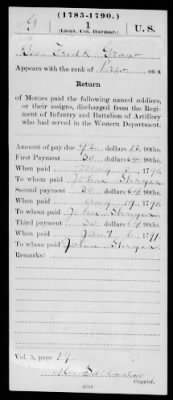 (1785-1790.)
G 1 U.S.
(Lieut. Col. Harmar.)
Appears with the rank of Priv on a
Return
of Monies paid the following named soldiers,
or their assigns, discharged from the Regi-
ment of Infantry and Battalion of Artillery
who had served in the Western Department.
Amount of pay due 92 dollars 12 90ths.
First Payment 30 dollars 64 90ths.
When paid May 1790
To whom paid John Stryer
Second payment 30 dollars 64 90ths.
When paid Aug 19 1790
To whom paid John Stryer
Third payment 30 dollars 64 90ths.
When paid Jan'y 6 1791
To whom paid John Stryer
Remarks:
Vol. 5, page
Copyist.